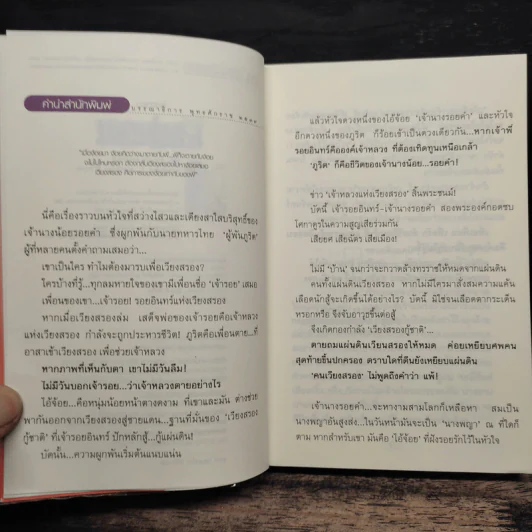 คำนำสำนักพิมพ์
นี่คือเรื่องราวบนหัวใจที่สว่างไสวและเดียงสาใสบริสุทธิ์ของ
เจ้านางน้อยรอยคำ ซึ่งผูกพันกับนายทหารไทย 'ผู้พันภูริต'
ผู้ที่หลายคนตั้งคำถามเสมอว่า...
เขาเป็นใคร ทำไมต้องมารบเพื่อเวียงสรอง?
ใครบ้างที่รู้...ทุกลมหายใจของเขามีเพื่อนชื่อ 'เจ้ารอย' เสมอ
เพื่อนของเขา...เจ้ารอย! รอยอินทร์แห่งเวียงสรอง
หากเมื่อเวียงสรองล่ม เสด็จพ่อของเจ้ารอยคือเจ้าหลวง
แห่งเวียงสรอง กำลังจะถูกประหารชีวิต! ภูริตคือเพื่อนตาย...ที่
อาสาเข้าเวียงสรอง เพื่อช่วยเจ้าหลวง
หากภาพที่เห็นกับตา เขาไม่มีวันลืม!
ไม่มีวันบอกเจ้ารอย...ว่าเจ้าหลวงตายอย่างไร
ไอ้จ้อย...คือหนุ่มน้อยหน้าตางดงาม ที่เขาและมัน ต่างช่วย
พากันออกจากเวียงสรองสู่ชายแดน...ฐานที่มั่นของ 'เวียงสรอง
กู้ชาติ' ที่เจ้ารอยอินทร์ ปักหลักสู้...กู้แผ่นดิน!
บัดนั้น...ความผูกพันเริ่มต้นแนบแน่น
แล้วหัวใจดวงหนึ่งของไอ้จ้อย 'เจ้านางรอยคำ' และหัวใจ
อีกดวงหนึ่งของภูริต ก็ร้อยเข้าเป็นดวงเดียวกัน...หากเจ้าพี่
รอยอินทร์คือองค์เจ้าหลวง ที่ต้องเทิดทูนเหนือเกล้า
'ภูริต' ก็คือชีวิตของเจ้านางน้อย...รอยคำ!
ข่าว 'เจ้าหลวงแห่งเวียงสรอง' สิ้นพระชนม์!
บัดนี้ เจ้ารอยอินทร์-เจ้านางรอยคำ สองพระองค์กอดซบ
โศกาดูรในความสูญเสียร่วมกัน
เสียยศ เสียฉัตร เสียเมือง!
ไม่มี 'บ้าน' จนกว่าจะกวาดล้างทรราชให้หมดจากแผ่นดิน
คนทั้งแผ่นดินเวียงสรอง หากไม่มีใครมาสั่งสมความแค้น
เลือดนักสู้จะเกิดขึ้นได้อย่างไร? บัดนี้ มีใช่จนเลือดตากระเด็น
หรอกหรือ จึงจับอาวุธขึ้นต่อสู้
จึงเกิดกองกำลัง 'เวียงสรองกู้ชาติ'...
ตายถมแผ่นดินเวียนสรองให้หมด ค่อยเหยียบศพคน
สุดท้ายขึ้นปกครอง ตราบใดที่ตีนยังเหยียบแผ่นดิน
'คนเวียงสรอง' ไม่พูดถึงคำว่า แพ้!
เจ้านางรอยคำ...จะหางามสามโลกก็เหลือหา สมเป็น
นางพญาอันสูงส่ง...ในวันหน้ามันจะเป็น 'นางพญา' ณ ที่ใดก็
ตาม หากสำหรับเขา มันคือ 'ไอ้จ้อย' ที่ฝังรอยรักไว้ในหัวใจ